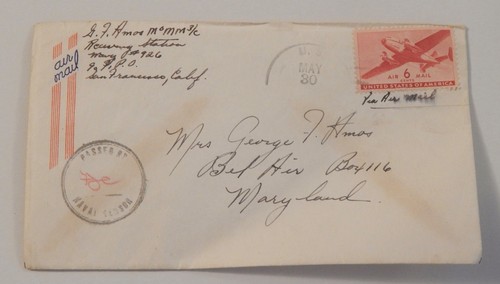 G. F. Amos MoMM3/c
Receiving Station
Navy #926
% F.P.O.
San Francisco, Calif.
air
mail
U.S.
MAY
30
AIR 6 MAIL
CENTS
UNITED STATES OF AMERICA
Via Air Mail
Mrs George F. Amos
Bel Air Box 116
Maryland.
PASSED BY
NAVAL CENSOR